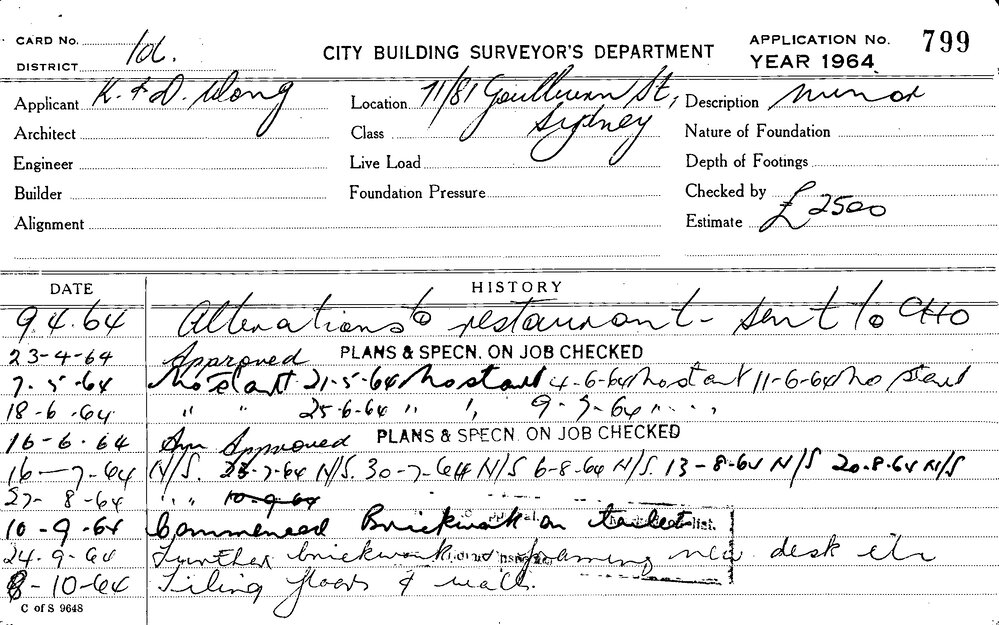 CARD No.
DISTRICT 1d.
CITY BUILDING SURVEYOR'S DEPARTMENT
APPLICATION No. 799
YEAR 1964
Applicant K. & D. Wong
Location 71/81 Goulburn St, Sydney
Description Minor
Architect
Class
Nature of Foundation
Engineer
Live Load
Depth of Footings
Builder
Foundation Pressure
Checked by
Alignment
Estimate £2500
DATE HISTORY
9.4.64 Alterations to restaurant - sent to CHO
23-4-64 Approved PLANS & SPECN. ON JOB CHECKED
7-5-64 No start 21-5-64 No start 4-6-64 No start 11-6-64 No start
18-6-64 " " 25-6-64 " " 9-7-64 " "
16-6-64 Approved PLANS & SPECN. ON JOB CHECKED
16-7-64 N/S. 23-7-64 N/S. 30-7-64 N/S 6-8-64 N/S. 13-8-64 N/S 20-8-64 N/S
27-8-64 " " 10-9-64
10-9-64 Commenced Brickwork on toilet
24.9-64 Further brickwork & framing new desk etc
8-10-64 Tiling floors & walls.
C of S 9648